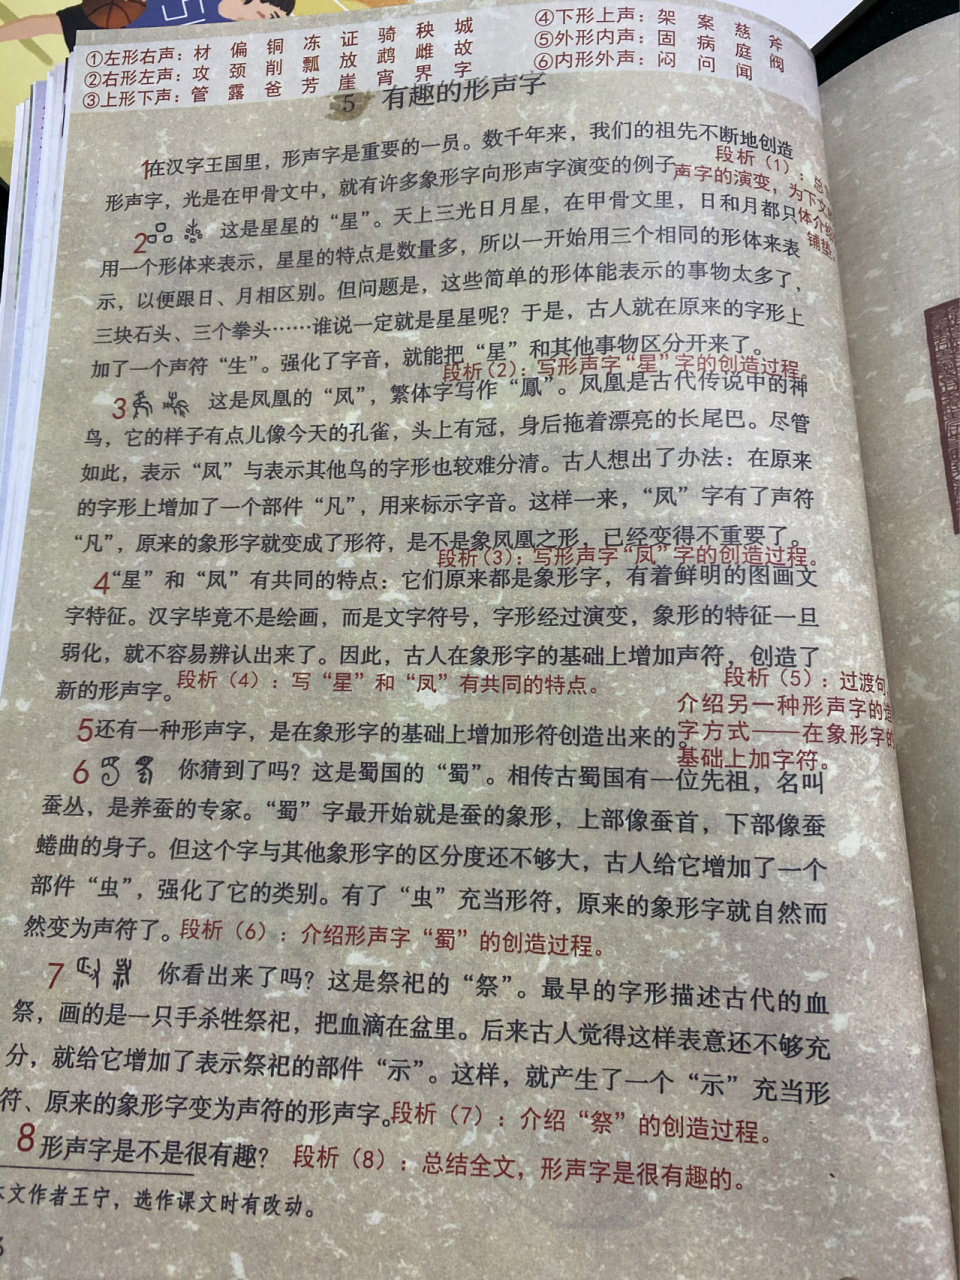 ①左形右声：材 偏 铜 冻 证 骑 秧 城
②右形左声：攻 颈 削 瓢 放 鹉 雌 故
③上形下声：管 露 爸 芳 崖 宵 界 字
④下形上声：架 案 慈 斧
⑤外形内声：固 病 庭 阀
⑥内形外声：闷 问 闻
5 有趣的形声字
1在汉字王国里，形声字是重要的一员。数千年来，我们的祖先不断地创造
形声字，光是在甲骨文中，就有许多象形字向形声字演变的例子
段析（1）：总
声字的演变，为下文
体介绍
铺垫。
2 这是星星的“星”。天上三光日月星，在甲骨文里，日和月都只
用一个形体来表示，星星的特点是数量多，所以一开始用三个相同的形体来表
示，以便跟日、月相区别。但问题是，这些简单的形体能表示的事物太多了，
三块石头、三个拳头……谁说一定就是星星呢？于是，古人就在原来的字形上
加了一个声符“生”。强化了字音，就能把“星”和其他事物区分开来了。
段析（2）：写形声字“星”字的创造过程。
3 这是凤凰的“凤”，繁体字写作“鳳”。凤凰是古代传说中的神
鸟，它的样子有点儿像今天的孔雀，头上有冠，身后拖着漂亮的长尾巴。尽管
如此，表示“凤”与表示其他鸟的字形也较难分清。古人想出了办法：在原来
的字形上增加了一个部件“凡”，用来标示字音。这样一来，“凤”字有了声符
“凡”，原来的象形字就变成了形符，是不是象凤凰之形，已经变得不重要了。
段析（3）：写形声字“凤”字的创造过程。
4“星”和“凤”有共同的特点：它们原来都是象形字，有着鲜明的图画文
字特征。汉字毕竟不是绘画，而是文字符号，字形经过演变，象形的特征一旦
弱化，就不容易辨认出来了。因此，古人在象形字的基础上增加声符，创造了
新的形声字。段析（4）：写“星”和“凤”有共同的特点。
5还有一种形声字，是在象形字的基础上增加形符创造出来的。
段析（5）：过渡句，
介绍另一种形声字的造
字方式——在象形字的
基础上加字符。
6 你猜到了吗？这是蜀国的“蜀”。相传古蜀国有一位先祖，名叫
蚕丛，是养蚕的专家。“蜀”字最开始就是蚕的象形，上部像蚕首，下部像蚕
蜷曲的身子。但这个字与其他象形字的区分度还不够大，古人给它增加了一个
部件“虫”，强化了它的类别。有了“虫”充当形符，原来的象形字就自然而
然变为声符了。段析（6）：介绍形声字“蜀”的创造过程。
7 你看出来了吗？这是祭祀的“祭”。最早的字形描述古代的血
祭，画的是一只手杀牲祭祀，把血滴在盆里。后来古人觉得这样表意还不够充
分，就给它增加了表示祭祀的部件“示”。这样，就产生了一个“示”充当形
符、原来的象形字变为声符的形声字。段析（7）：介绍“祭”的创造过程。
8形声字是不是很有趣？ 段析（8）：总结全文，形声字是很有趣的。
文作者王宁，选作课文时有改动。